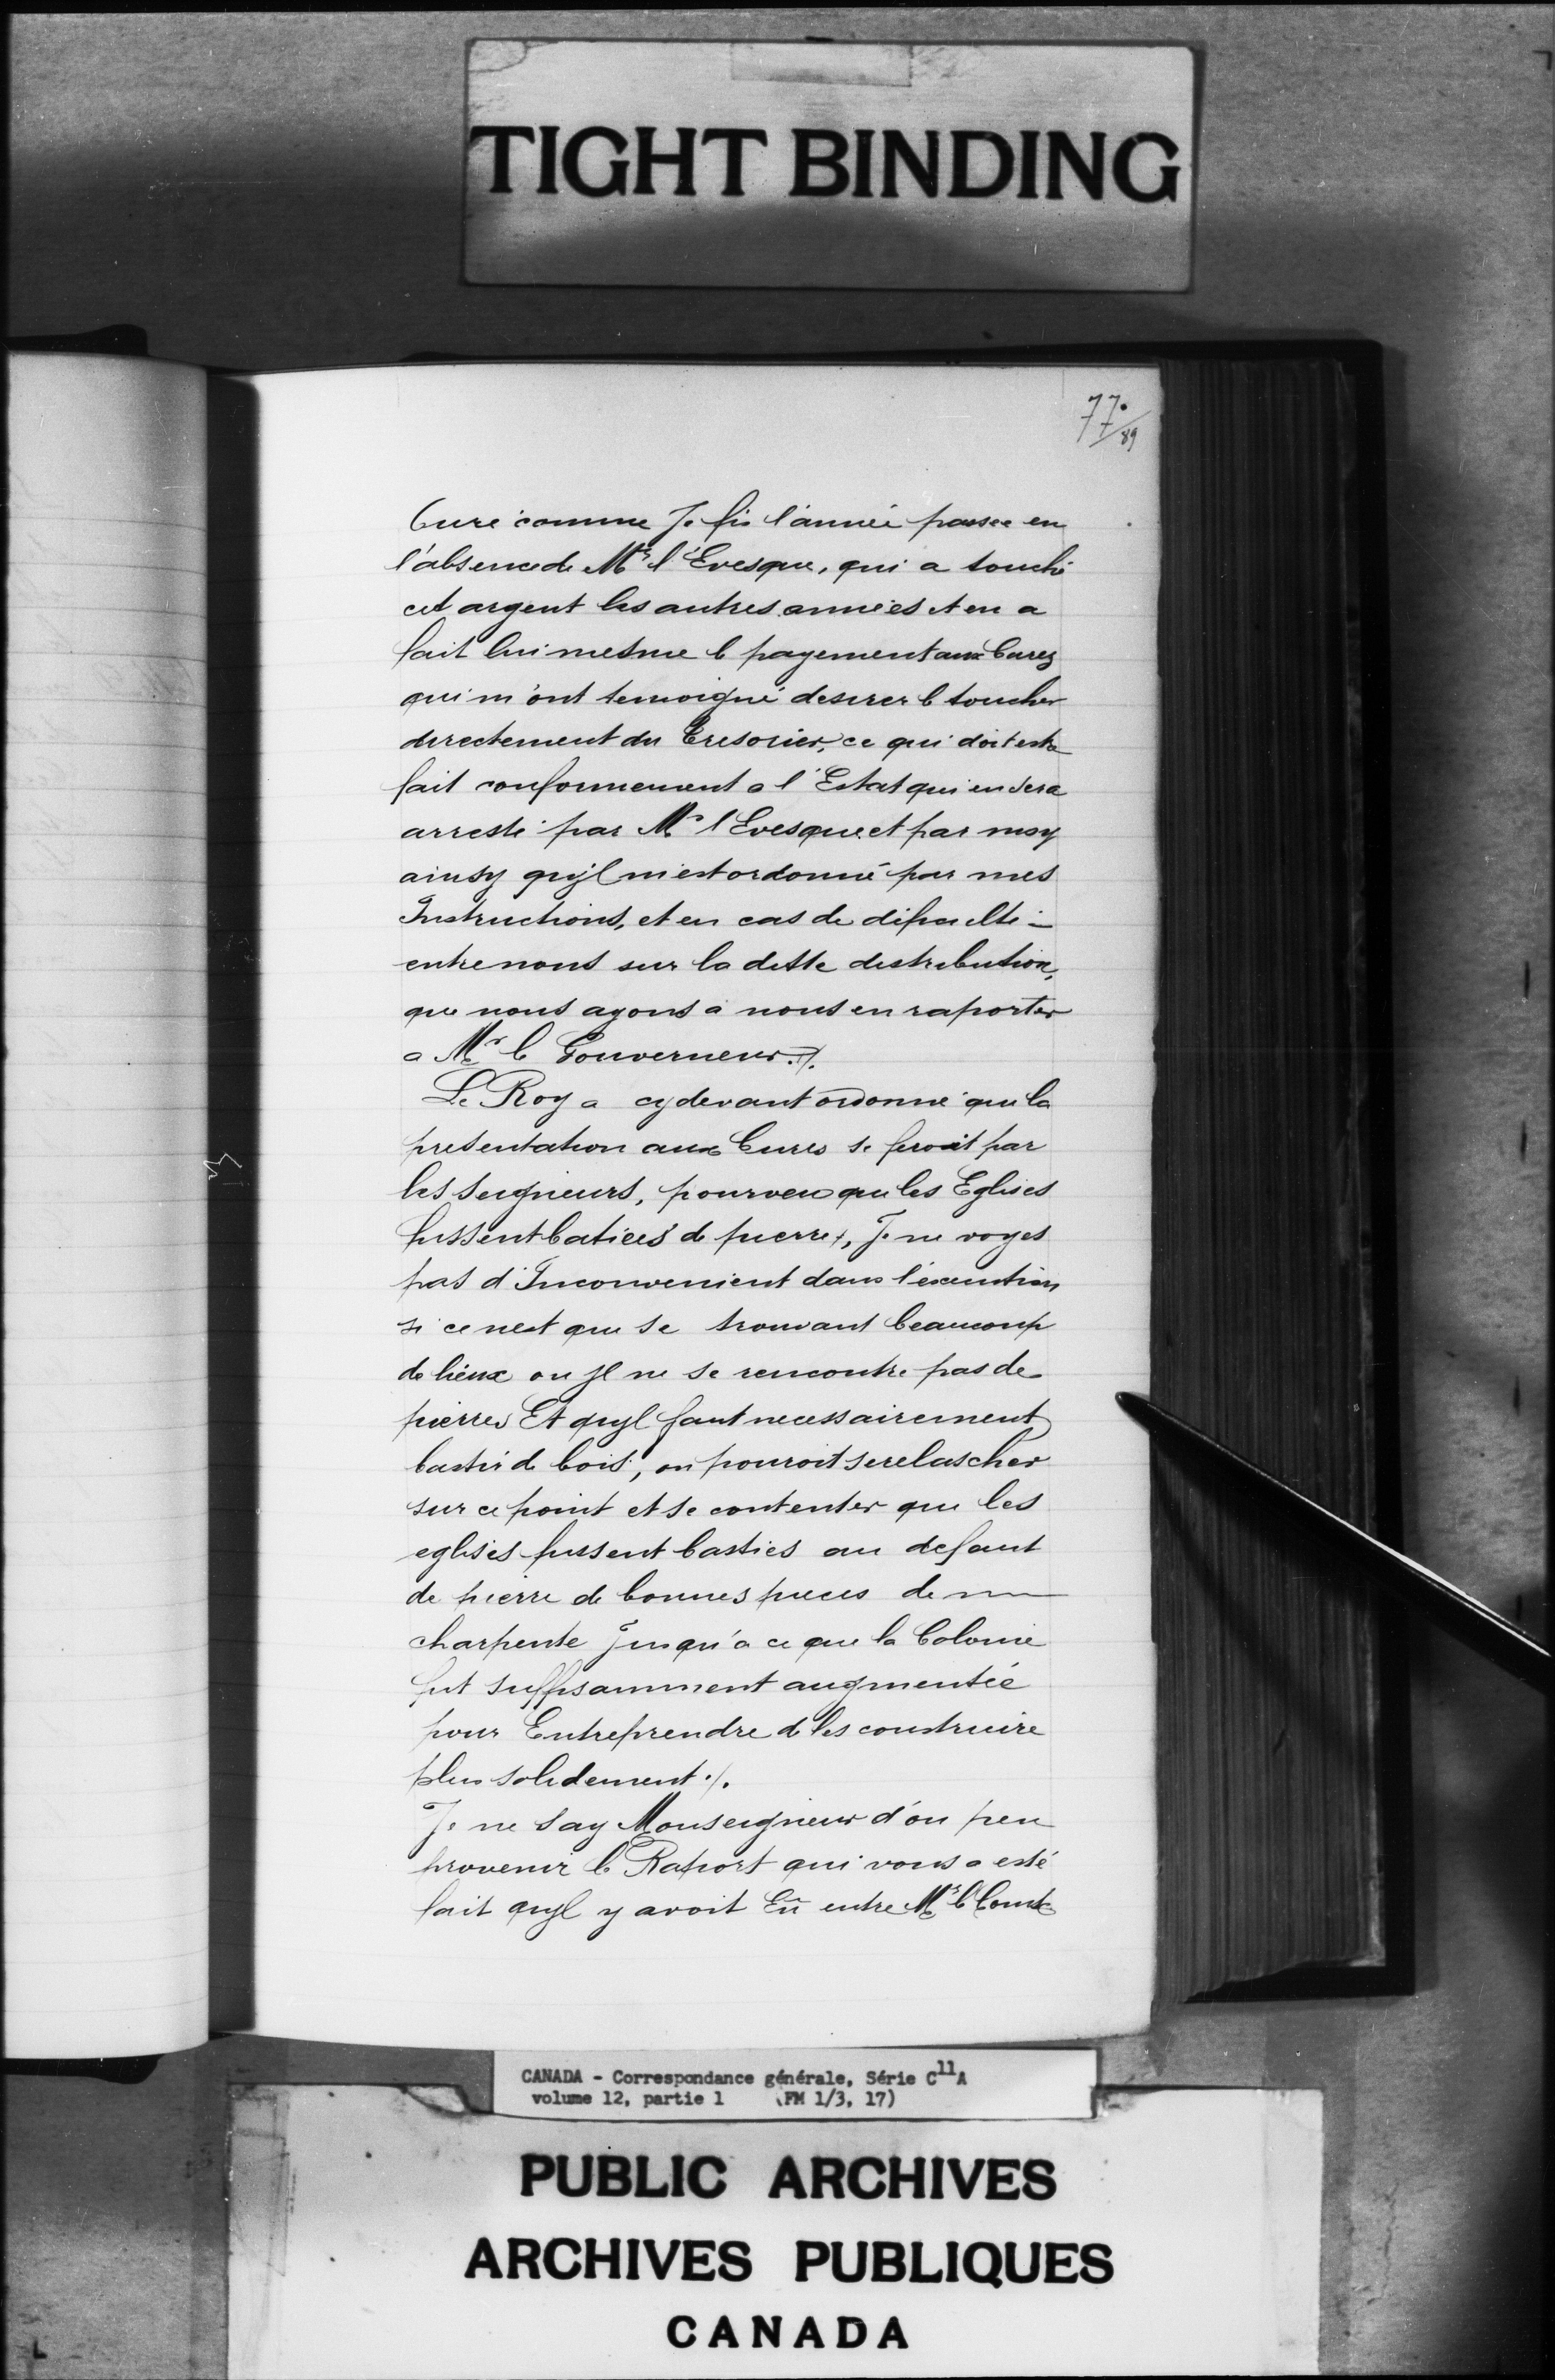 TIGHT BINDING
77.
89
Curé comme Je fis l'année passee en
l'absence de Mr l'Evesque, qui a touché
cet argent les autres années et en a
fait lui mesme le payement aux Curez
qui m'ont temoigné desirer le toucher
directement du Tresorier, ce qui doit estre
fait conformement a l'Estat qui en sera
arresté par Mr l'Evesque et par moy
ainsy qu'jl m'est ordonné par mes
Instructions, et en cas de dificulté -
entre nous sur la ditte distribution,
que nous ayons à nous en raporter
a Mr le Gouverneur ./.
Le Roy a cy devant ordonné que la
presentation aux Cures se feroit par
les seigneurs, pourveu que les Eglises
fussent baties de pierre, Je ne voyes
pas d'Inconvenient dans l'execution
si ce nest que se trouvant beaucoup
de lieux ou jl ne se rencontre pas de
pierres Et quyl faut necessairement
bastir de bois, on pouroit se relascher
sur ce point et se contenter que les
eglises fussent basties au defaut
de pierre de bonnes pieces de
charpente Jusqu'a ce que la Colonie
fut suffisamment augmentée
pour Entreprendre de les construire
plus solidement ./.
Je ne say Monseigneur d'ou peu
provenir le Raport qui vous a esté
fait quyl y avoit Eü entre Mr le Comte
CANADA - Correspondance générale, Série C11A
volume 12, partie 1 (FM 1/3, 17)
PUBLIC ARCHIVES
ARCHIVES PUBLIQUES
CANADA